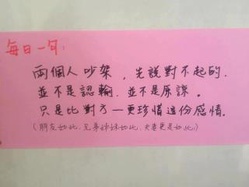 每日一句:
兩個人吵架，先說對不起的，
並不是認輸，並不是原諒。
只是比對方一更珍惜這份感情。
(朋友如此，兄弟姊妹如此，夫妻更是如此)